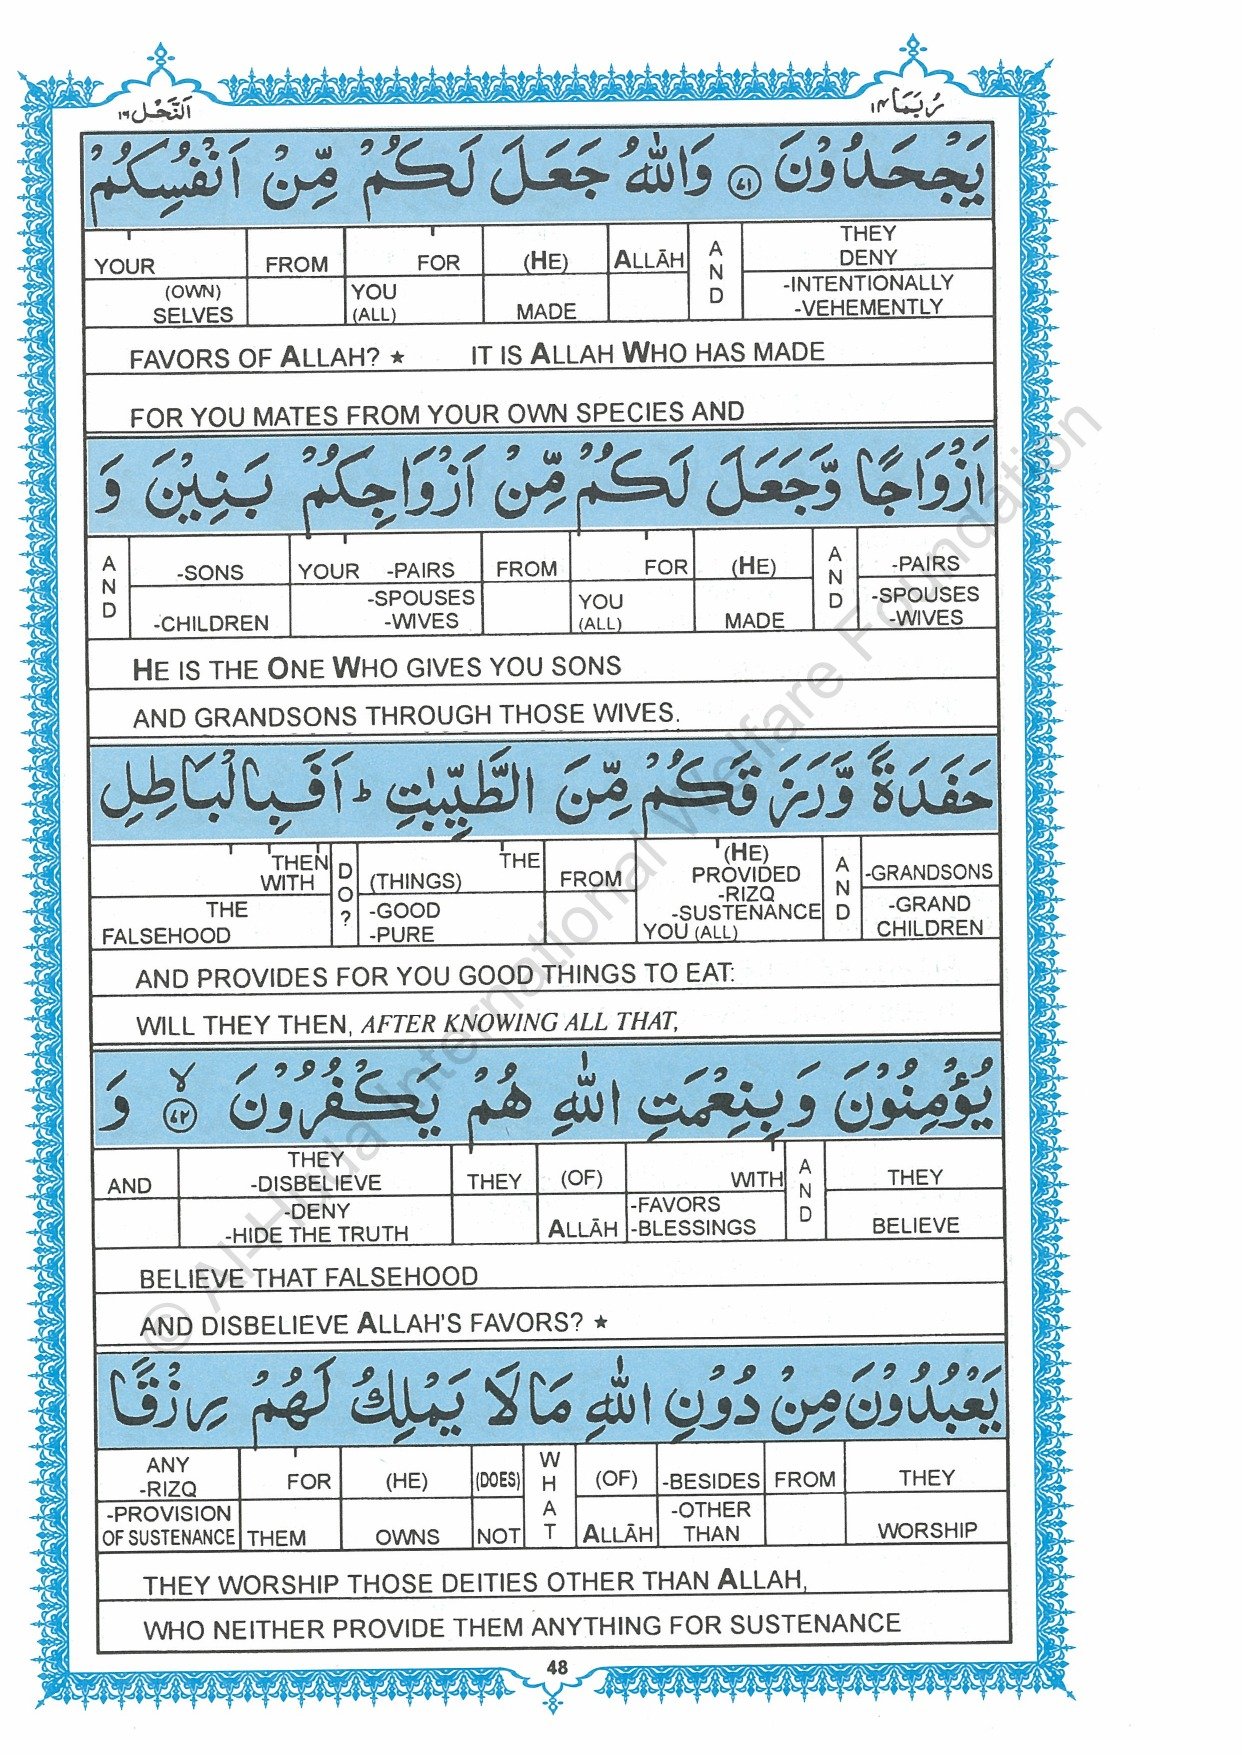 اَلنَّحْل ١٦
رُبَمَا ١٤
يَجْحَدُوْنَ ﴿٧١﴾ وَاللّٰهُ جَعَلَ لَكُمْ مِّنْ اَنْفُسِكُمْ
YOUR FROM FOR (HE) ALLĀH AND THEY DENY
(OWN) SELVES YOU (ALL) MADE -INTENTIONALLY -VEHEMENTLY
FAVORS OF ALLAH? ★ IT IS ALLAH WHO HAS MADE
FOR YOU MATES FROM YOUR OWN SPECIES AND
اَزْوَاجًا وَّجَعَلَ لَكُمْ مِّنْ اَزْوَاجِكُمْ بَنِيْنَ وَ
AND -SONS YOUR -PAIRS FROM FOR (HE) AND -PAIRS
-CHILDREN -SPOUSES -WIVES YOU (ALL) MADE -SPOUSES -WIVES
HE IS THE ONE WHO GIVES YOU SONS
AND GRANDSONS THROUGH THOSE WIVES.
حَفَدَةً وَّرَزَقَكُمْ مِّنَ الطَّيِّبٰتِ ؕ اَفَبِالْبَاطِلِ
THEN WITH DO? (THINGS) THE FROM (HE) PROVIDED -RIZQ AND -GRANDSONS
THE FALSEHOOD -GOOD -PURE -SUSTENANCE YOU (ALL) -GRAND CHILDREN
AND PROVIDES FOR YOU GOOD THINGS TO EAT:
WILL THEY THEN, AFTER KNOWING ALL THAT,
يُؤْمِنُوْنَ وَبِنِعْمَتِ اللّٰهِ هُمْ يَكْفُرُوْنَ ﴿٧٢﴾ۙ وَ
AND THEY -DISBELIEVE THEY (OF) WITH AND THEY
-DENY -HIDE THE TRUTH ALLĀH -FAVORS -BLESSINGS BELIEVE
BELIEVE THAT FALSEHOOD
AND DISBELIEVE ALLAH'S FAVORS? ★
يَعْبُدُوْنَ مِنْ دُوْنِ اللّٰهِ مَا لَا يَمْلِكُ لَهُمْ رِزْقًا
ANY -RIZQ FOR (HE) (DOES) WHAT (OF) -BESIDES FROM THEY
-PROVISION OF SUSTENANCE THEM OWNS NOT ALLĀH -OTHER THAN WORSHIP
THEY WORSHIP THOSE DEITIES OTHER THAN ALLAH,
WHO NEITHER PROVIDE THEM ANYTHING FOR SUSTENANCE
48
© Al-Huda International Welfare Foundation